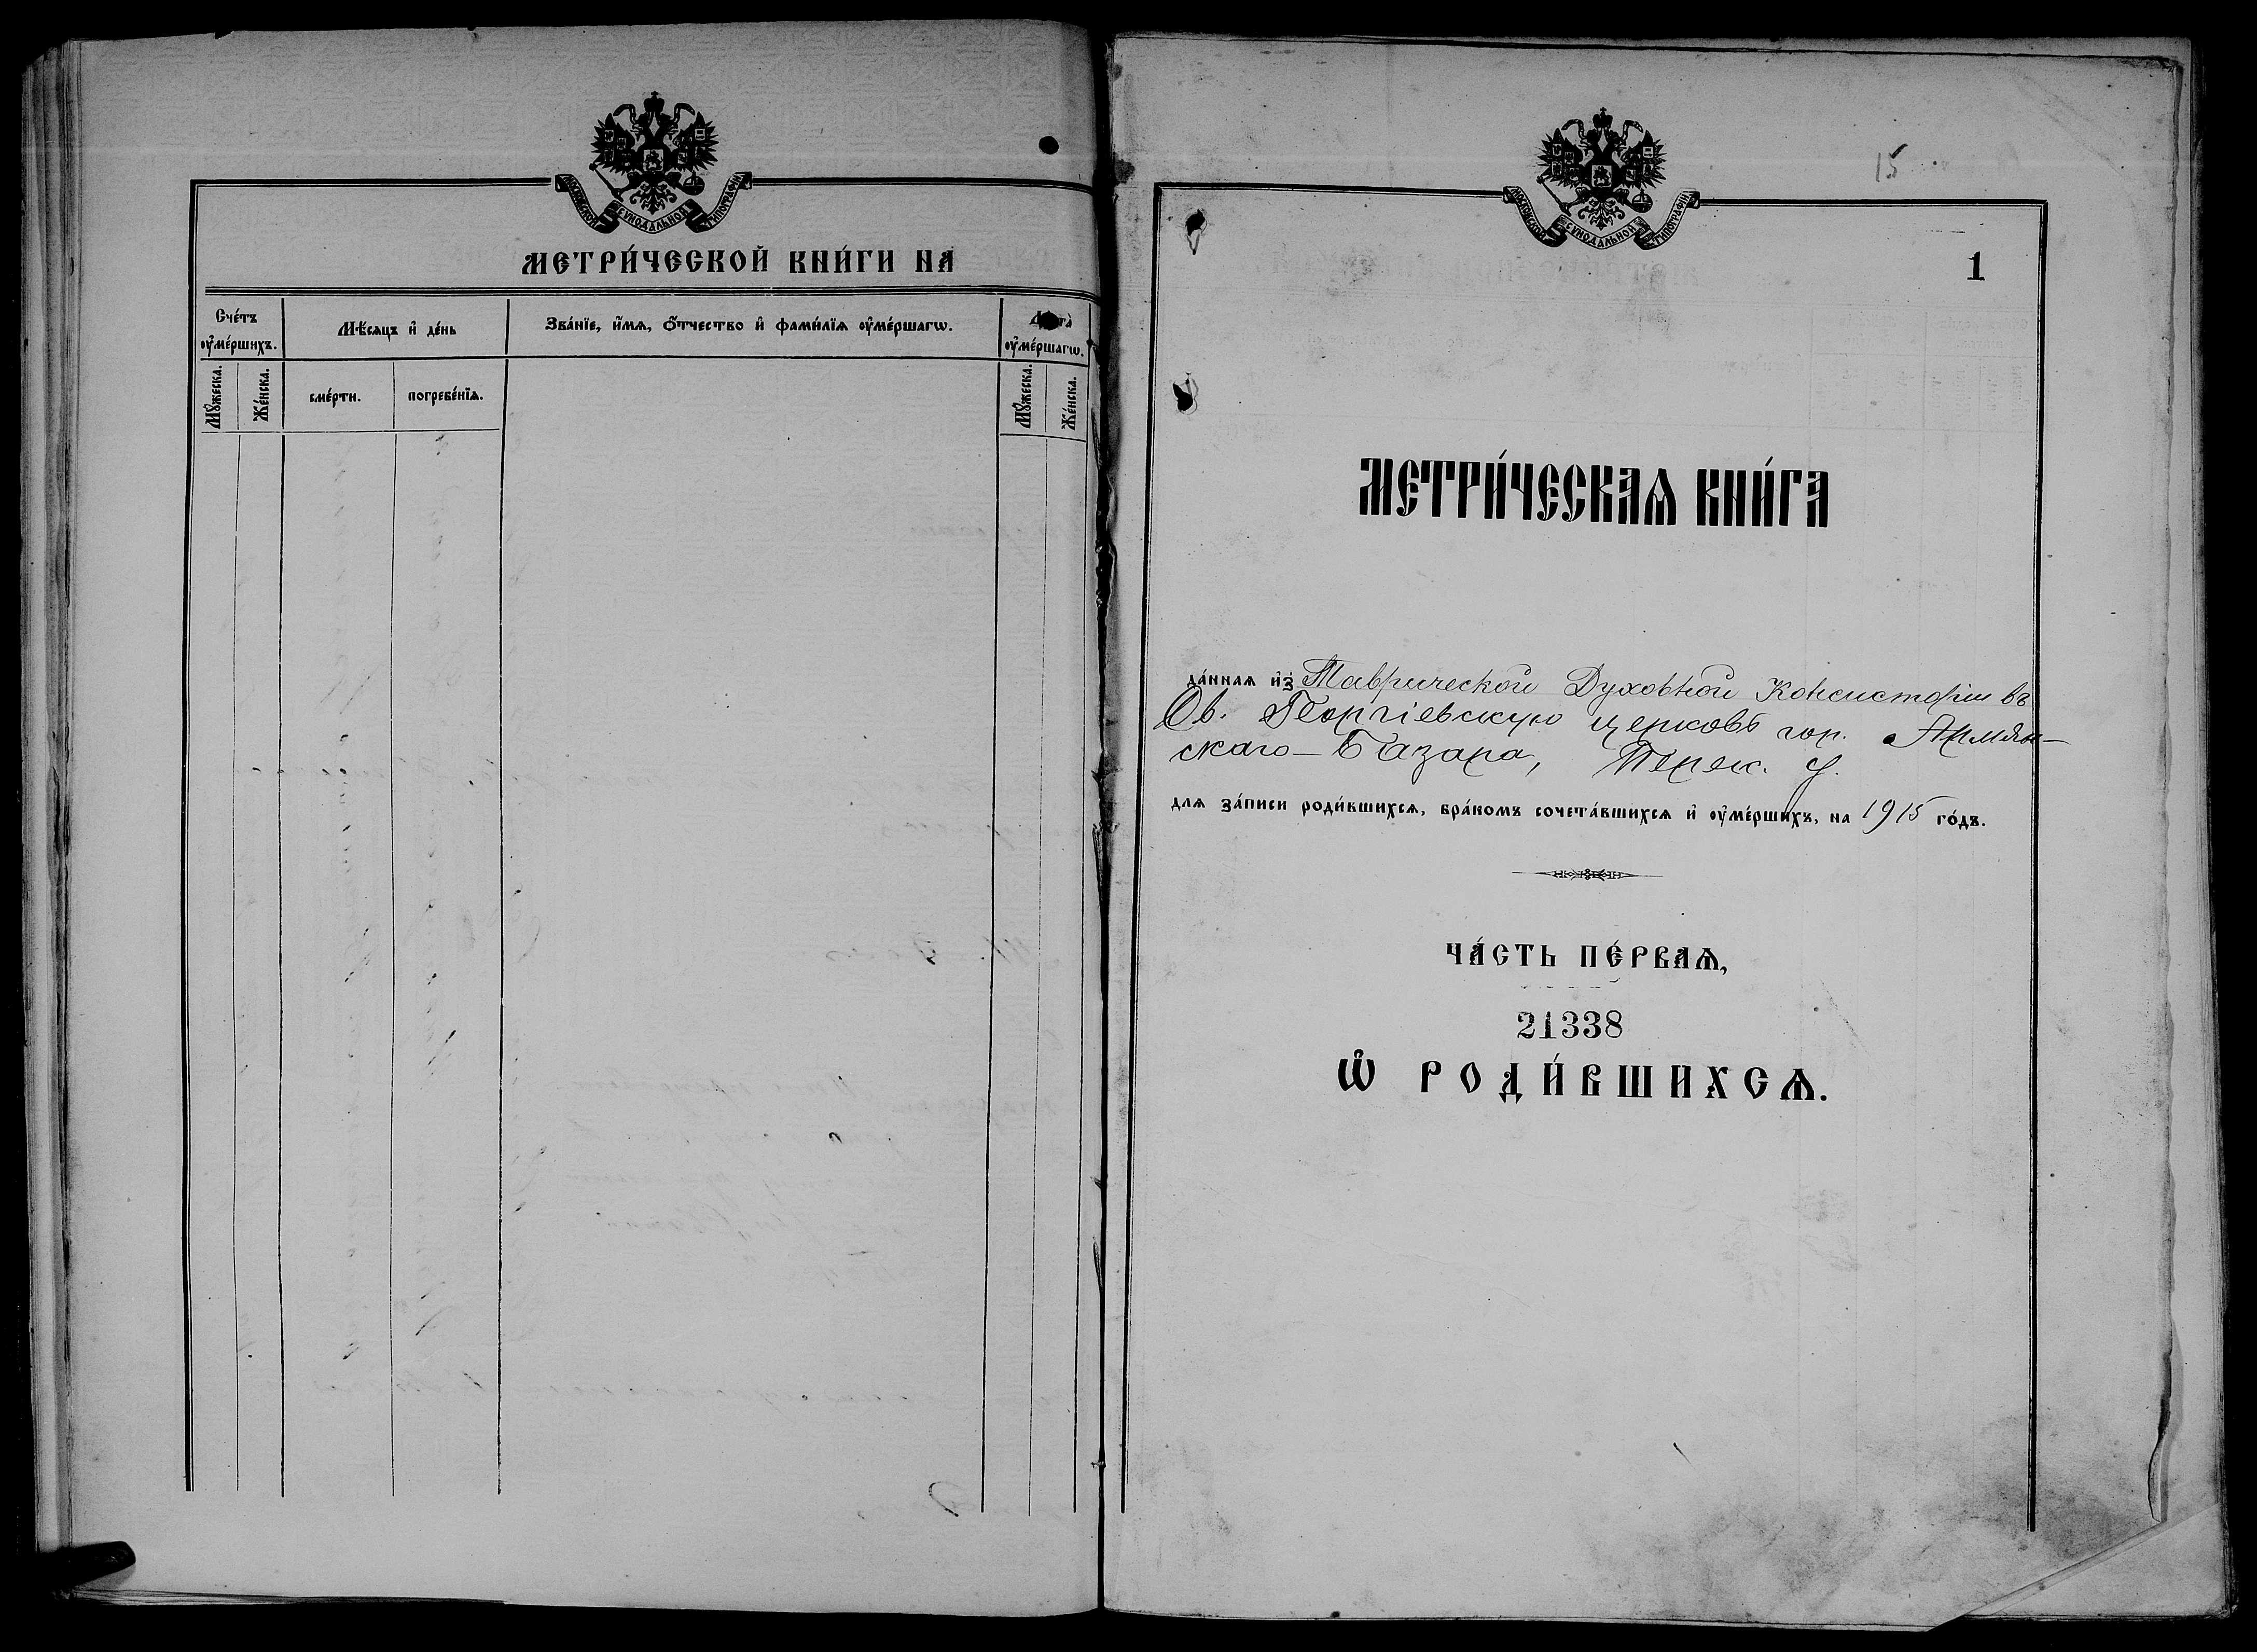 МОСКОВСКОЙ СѴНОДАЛЬНОЙ ТИПОГРАФІИ
МЕТРИ́ЧЕСКОЙ КНИ́ГИ НА
Сче́тъ ᲂу҆ме́ршихъ.
Мѣ́сяцъ и҆ де́нь
Зва́нїе, и҆́мѧ, ѻ҆́тчество и҆ фами́лїѧ ᲂу҆ме́ршагѡ.
ᲂу҆ме́ршагѡ.
Мꙋ́жеска.
Же́нска.
сме́рти.
погребе́нїѧ.
Мꙋ́жеска.
Же́нска.
МОСКОВСКОЙ СѴНОДАЛЬНОЙ ТИПОГРАФІИ
15
1
МЕТРИ́ЧЕСКАѦ КНИ́ГА
да́ннаѧ и҆з̾ Таврической Духовной Консисторіи въ
Св. Георгіевскую церковь гор. Армян-
скаго-Базара, Перек. у.
длѧ за́писи роди́вшихсѧ, бра́комъ сочета́вшихсѧ и҆ ᲂу҆ме́ршихъ, на 1915 го́дъ.
ЧА́СТЬ ПЕ́РВАѦ,
21338
Ѡ҆ РОДИ́ВШИХСѦ.